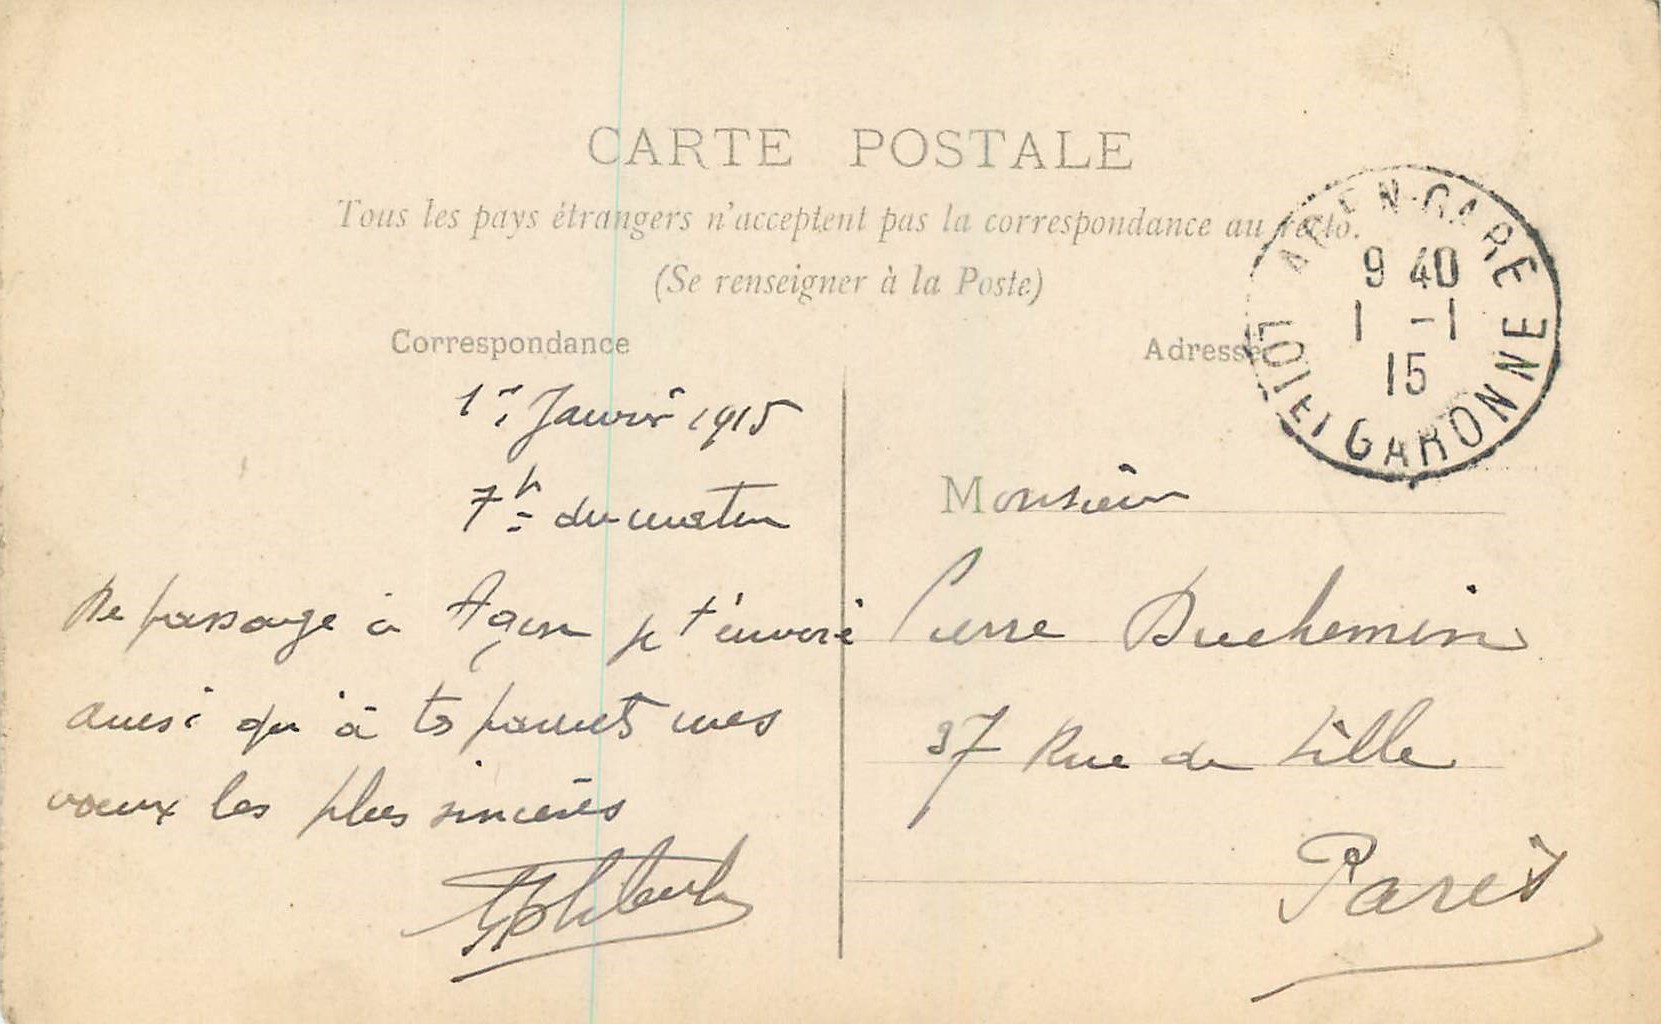 CARTE POSTALE
Tous les pays étrangers n'acceptent pas la correspondance au recto.
(Se renseigner à la Poste)
Correspondance
Adresse
AGEN-GARE
9 40
1 -1
15
LOT ET GARONNE
1er Janvier 1915
7h du matin
De passage à Agen je t'envoie
ainsi qu'à tes parents mes
vœux les plus sincères
Monsieur
Pierre Duchemin
37 Rue de Lille
Paris